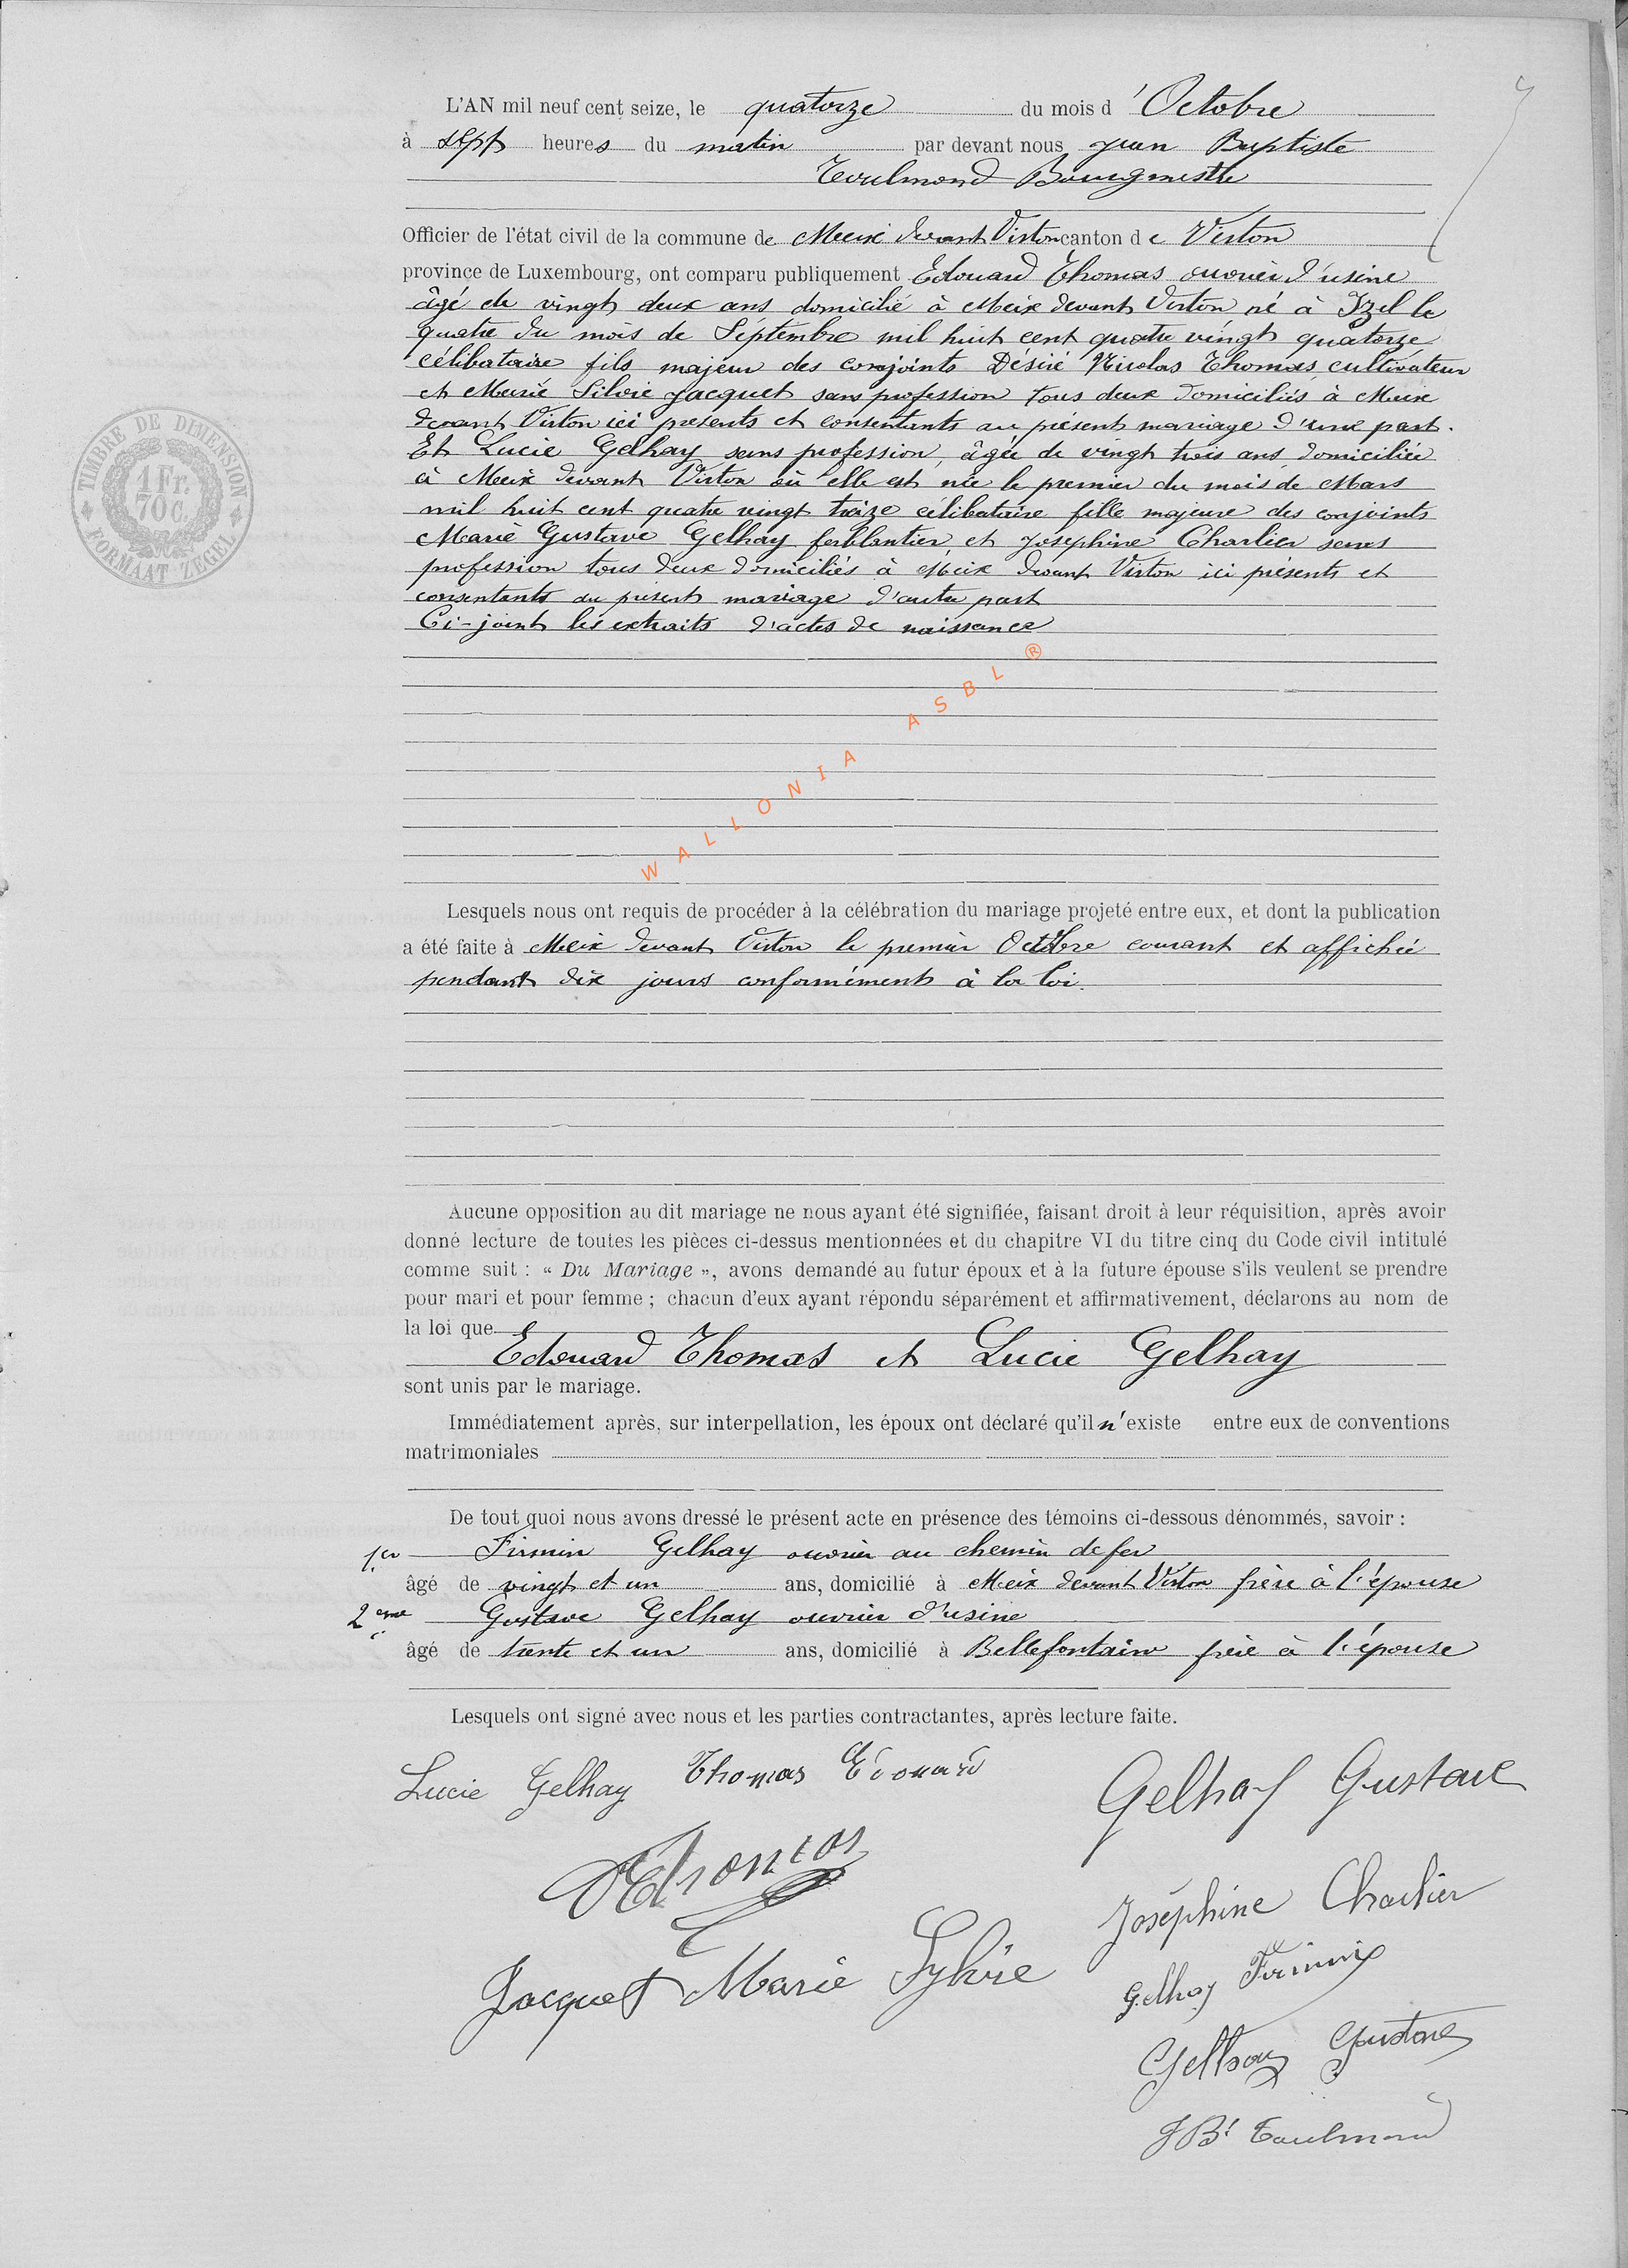 L'AN mil neuf cent seize, le quatorze du mois d'Octobre
à sept heures du matin par devant nous Jean Baptiste
Toulmond Bourgmestre
Officier de l'état civil de la commune de Meix devant Virton canton de Virton
province de Luxembourg, ont comparu publiquement Edouard Thomas ouvrier d'usine
âgé de vingt deux ans domicilié à Meix devant Virton né à Izel le
quatre du mois de Septembre mil huit cent quatre vingt quatorze
célibataire fils majeur des conjoints Désiré Nicolas Thomas, cultivateur
et Marie Silvie Jacquet sans profession tous deux domiciliés à Meix
devant Virton ici présents et consentants au présent mariage d'une part.
Et Lucie Gelhay sans profession, âgée de vingt trois ans, domiciliée
à Meix devant Virton où elle est née le premier du mois de Mars
mil huit cent quatre vingt treize célibataire fille majeure des conjoints
Marie Gustave Gelhay ferblantier, et Joséphine Charlier sans
profession tous deux domiciliés à Meix devant Virton ici présents et
consentants au présent mariage d'autre part
Ci-joint les extraits d'actes de naissance
WALLONIA ASBL ®
TIMBRE DE DIMENSION
1 Fr.
70 C.
FORMAAT ZEGEL
Lesquels nous ont requis de procéder à la célébration du mariage projeté entre eux, et dont la publication
a été faite à Meix devant Virton le premier Octobre courant et affichée
pendant dix jours conformément à la loi.
Aucune opposition au dit mariage ne nous ayant été signifiée, faisant droit à leur réquisition, après avoir
donné lecture de toutes les pièces ci-dessus mentionnées et du chapitre VI du titre cinq du Code civil intitulé
comme suit : « Du Mariage », avons demandé au futur époux et à la future épouse s'ils veulent se prendre
pour mari et pour femme ; chacun d'eux ayant répondu séparément et affirmativement, déclarons au nom de
la loi que
Edouard Thomas et Lucie Gelhay
sont unis par le mariage.
Immédiatement après, sur interpellation, les époux ont déclaré qu'il n'existe entre eux de conventions
matrimoniales
De tout quoi nous avons dressé le présent acte en présence des témoins ci-dessous dénommés, savoir :
1er Firmin Gelhay ouvrier au chemin de fer
âgé de vingt et un ans, domicilié à Meix devant Virton frère à l'épouse
2eme Gustave Gelhay ouvrier d'usine
âgé de trente et un ans, domicilié à Bellefontaine frère à l'épouse
Lesquels ont signé avec nous et les parties contractantes, après lecture faite.
Lucie Gelhay Thomas Edouard Gelhay Gustave
Thomas
Joséphine Charlier
Jacquet Marie Sylvie
Gelhay Firmin
Gelhay Gustave
J Bt Toulmond